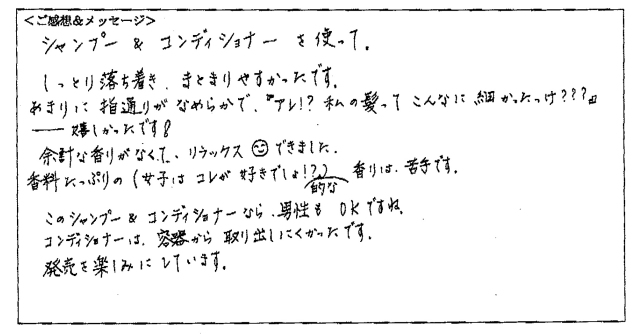 <ご感想&メッセージ>
シャンプー & コンディショナー を使って、
しっとり落ち着き、まとまりやすかったです。
あまりに 指通りが なめらかで、『アレ!? 私の髪って こんなに 細かったっけ???』
―― 嬉しかったです!
余計な香りがなくて、リラックス☺できました。
香料たっぷりの (女子は コレが 好きでしょ!?) 的な 香りは、苦手です。
このシャンプー & コンディショナーなら、男性も OKですね。
コンディショナーは、容器から 取り出しにくかったです。
発売を楽しみにしています。